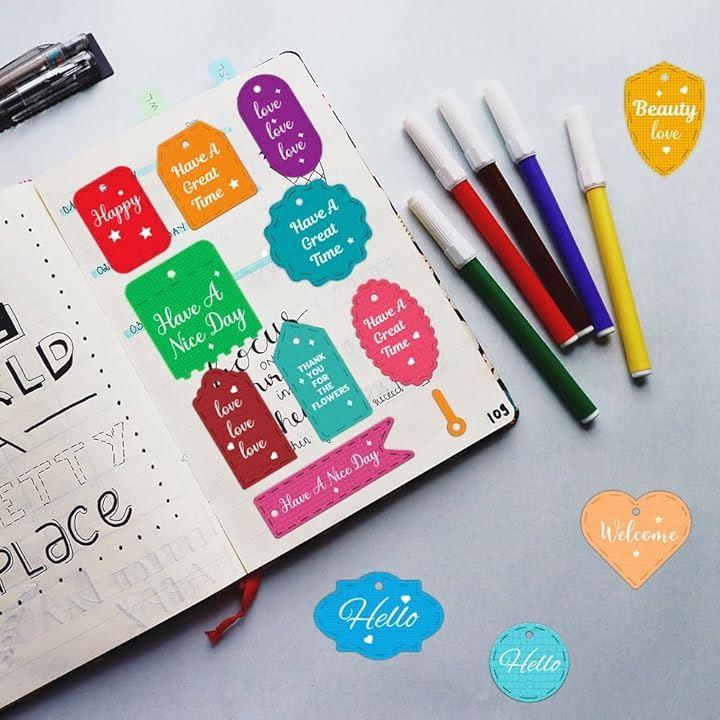 love
love
love
Have A
Great
Time
Happy
Have A
Great
Time
Have A
Nice Day
Have A
Great
Time
THANK
YOU
FOR
THE
FLOWERS
love
love
love
Have A Nice Day
109
A
ETTY
PLace
Beauty
love
Welcome
Hello
Hello